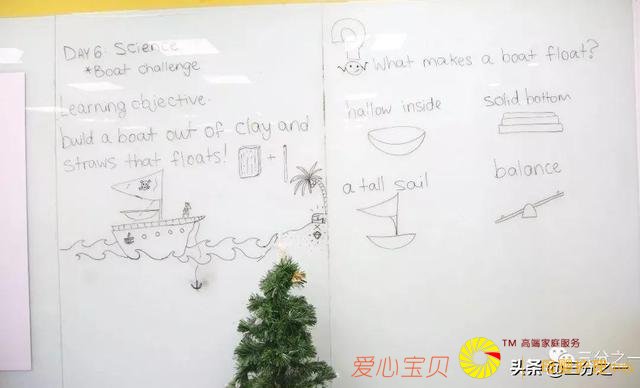 DAY 6: Science
*Boat challenge
Learning objective:
build a boat out of clay and
straws that floats!
+
?
What makes a boat float?
hallow inside
solid bottom
a tall sail
balance
爱心宝贝
TM 高端家庭服务
头条@三分之一
三分之一